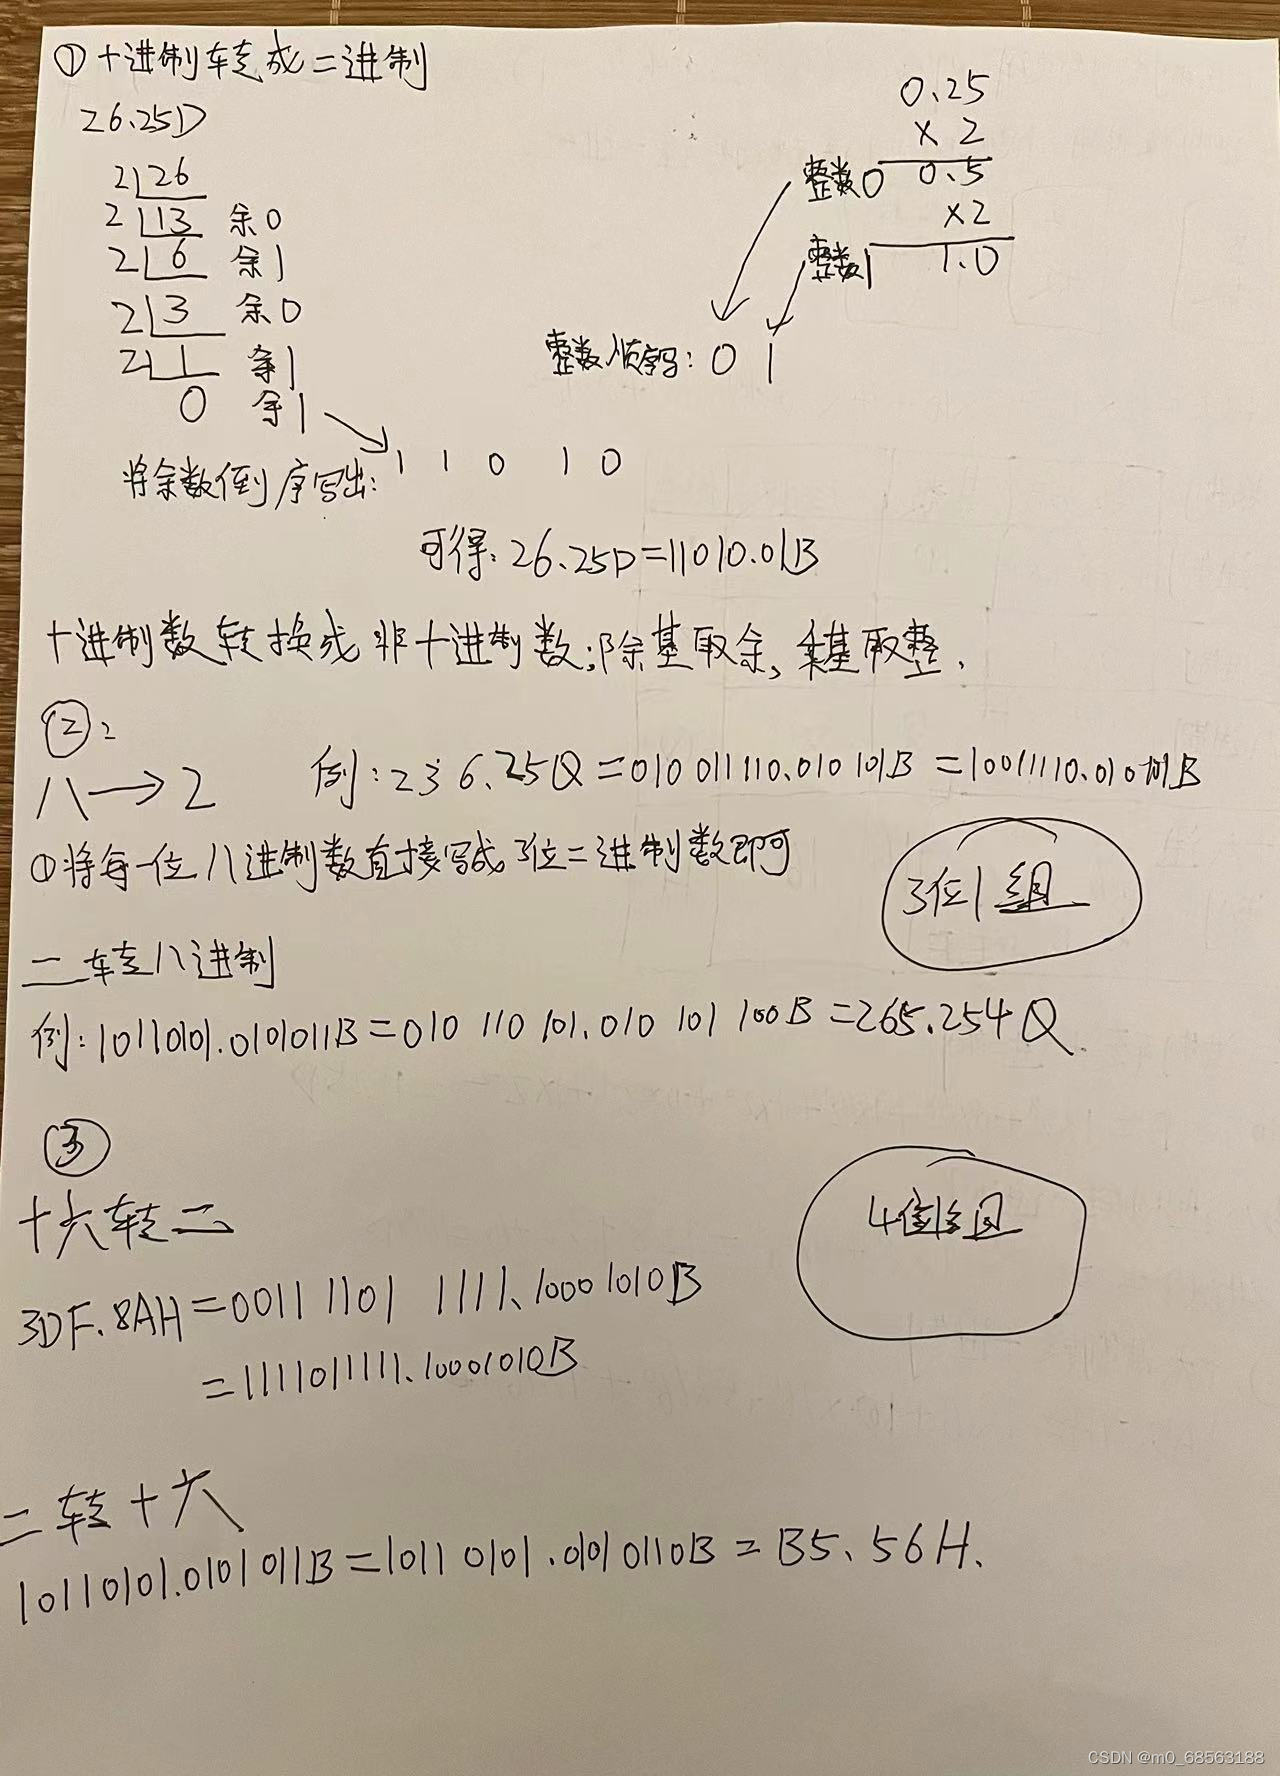 ① 十进制转成二进制
26.25D
2 26
2 13 余0
2 6 余1
2 3 余0
2 1 余1
0 余1
将余数倒序写出: 1 1 0 1 0
0.25
× 2
整数0 0.5
×2
整数1 1.0
整数顺序写: 0 1
可得: 26.25D=11010.01B
十进制数转换成非十进制数:除基取余、乘基取整.
②:
八→2 例:236.25Q=010 011 110.010 101B=10011110.010101B
①将每一位八进制数直接写成3位二进制数即可
3位1组
二转八进制
例:10110101.0101011B=010 110 101.010 101 100B=265.254Q
③
十六转二
4位1组
3DF.8AH=0011 1101 1111.1000 1010B
=1111011111.10001010B
二转十六
10110101.0101011B=1011 0101.0101 0110B=B5.56H.
CSDN @m0_68563188